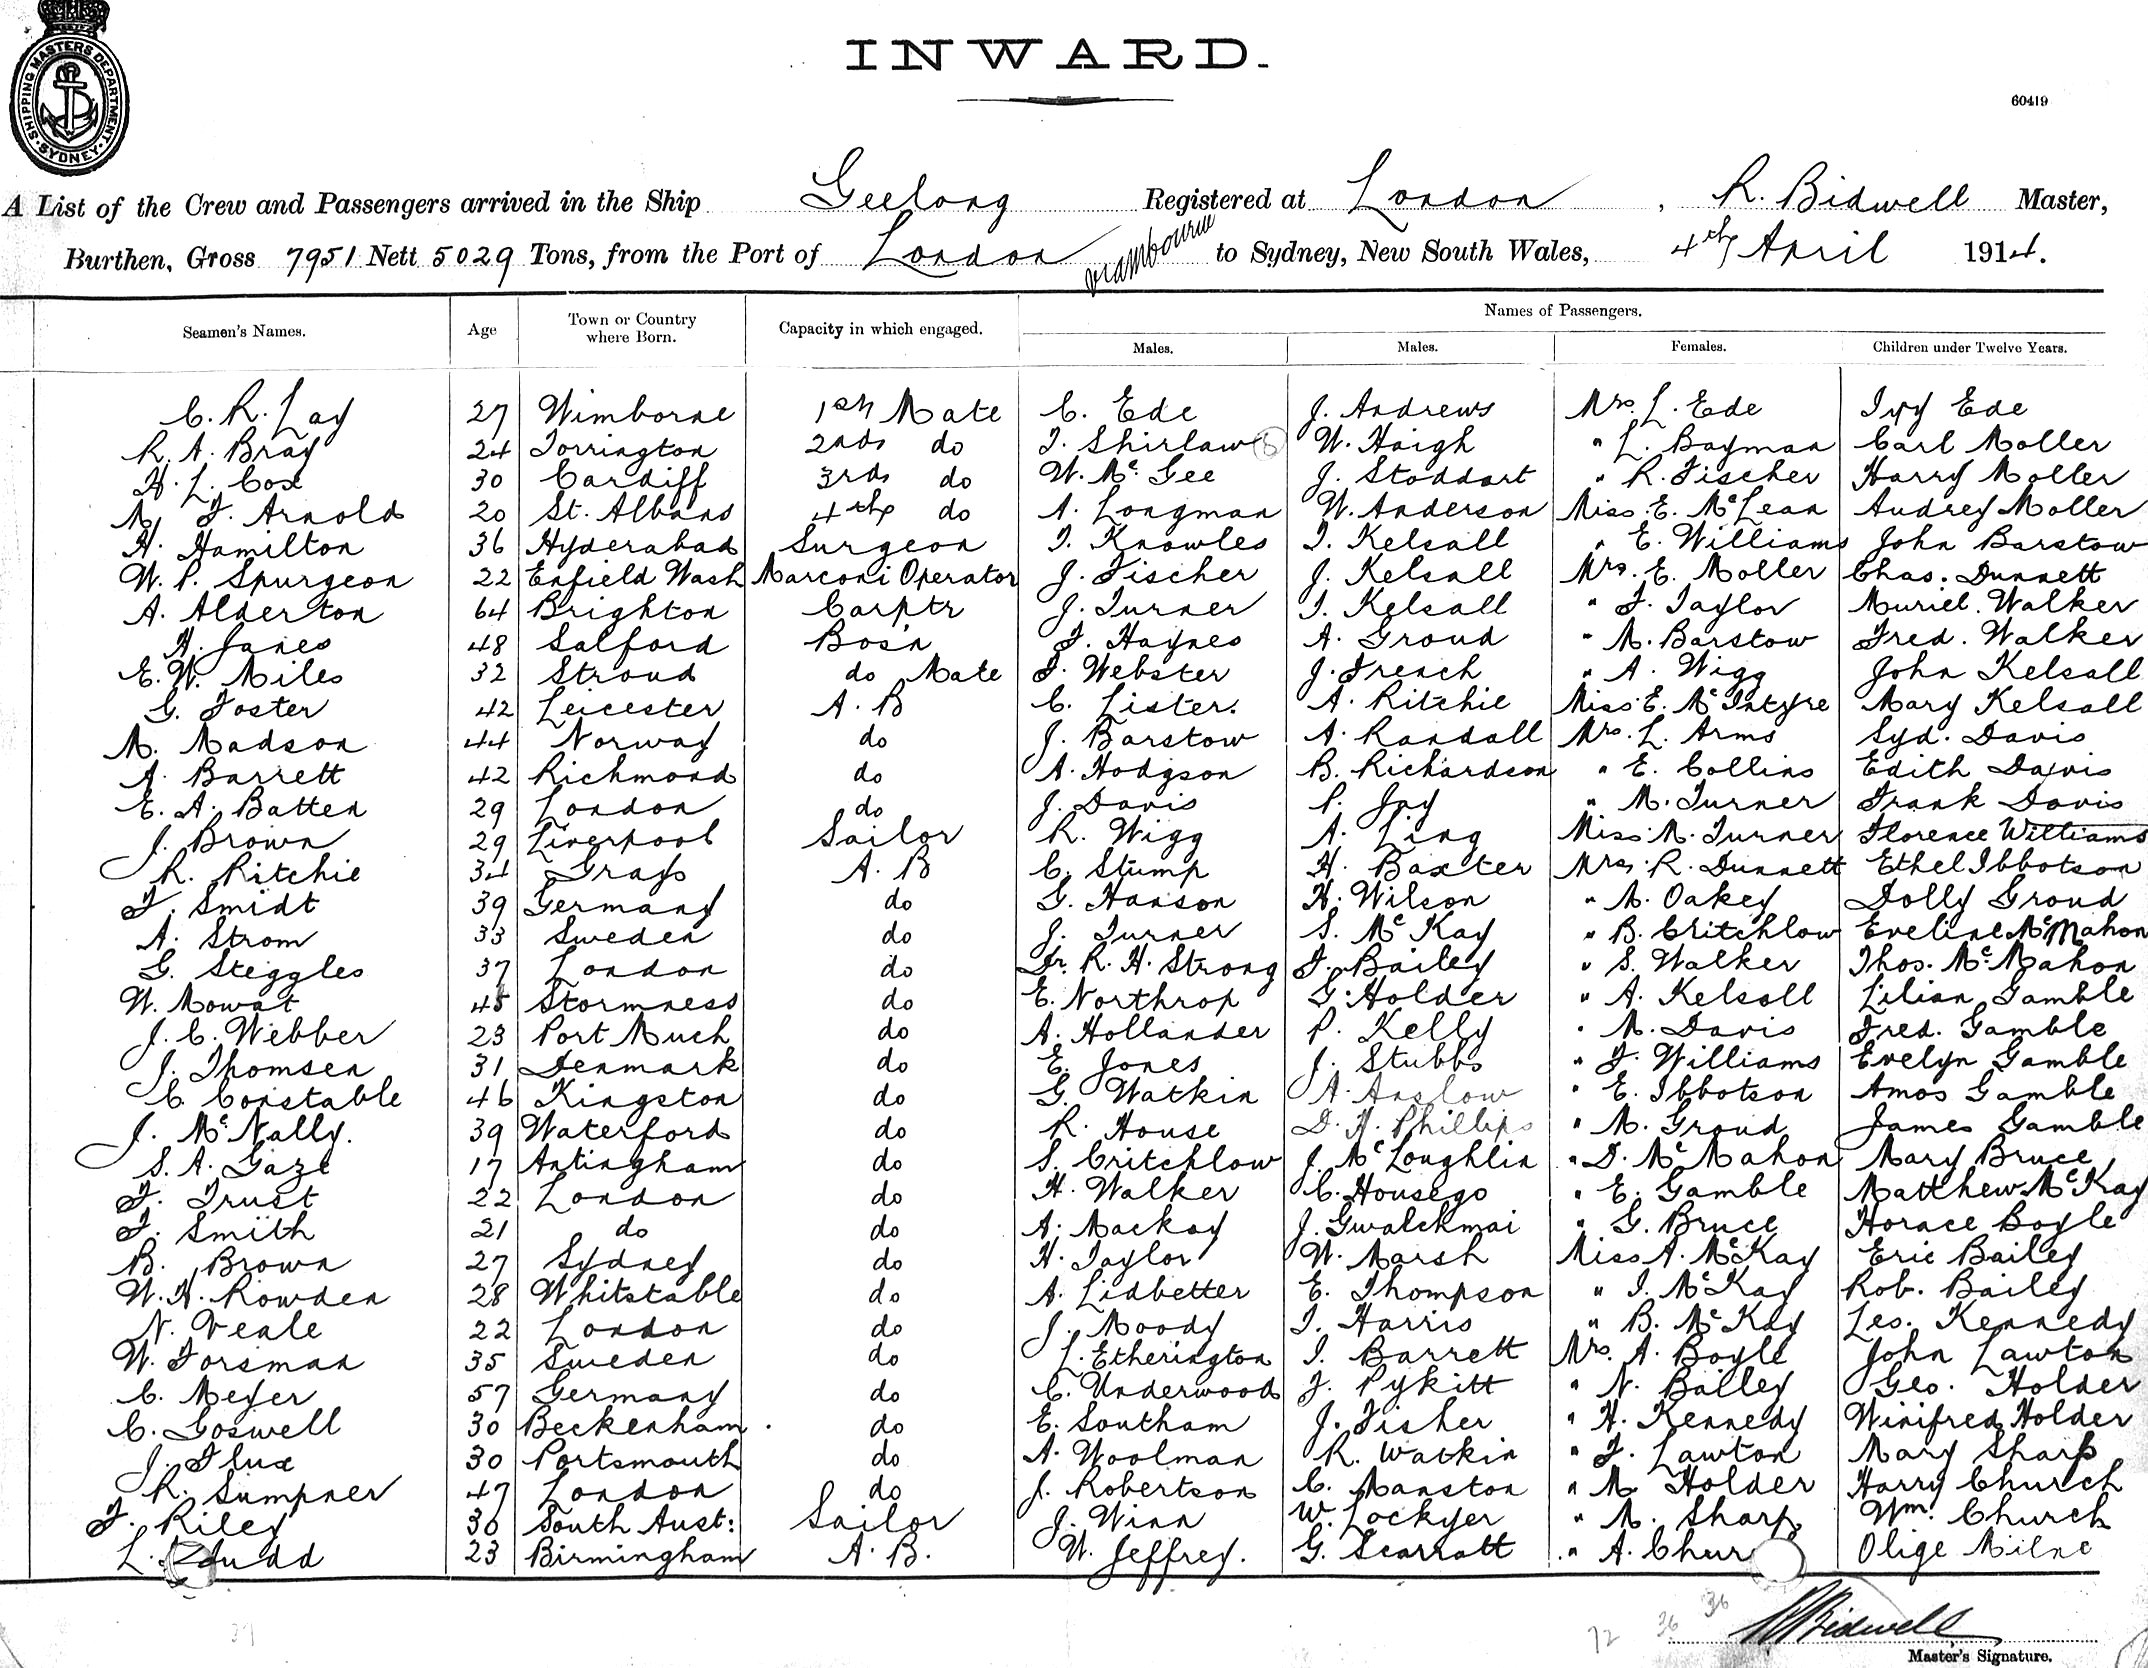 SHIPPING MASTERS DEPARTMENT. SYDNEY.
INWARD.
60419
A List of the Crew and Passengers arrived in the Ship Geelong Registered at London, R. Bidwell Master,
Burthen, Gross 7951 Nett 5029 Tons, from the Port of London to Sydney, New South Wales, 4th April 1914.
Names of Passengers.
Seamen's Names. Age Town or Country where Born. Capacity in which engaged. Males. Males. Females. Children under Twelve Years.
C. R. Lay 27 Wimborne 1st Mate C. Ede J. Andrews Mrs. L. Ede Ivy Ede
R. A. Bray 24 Torrington 2nd do T. Shirlaw W. Haigh " L. Bayman Carl Moller
H. L. Cox 30 Cardiff 3rd do W. McGee J. Stoddart " R. Fischer Harry Moller
M. F. Arnold 20 St. Albans 4th do A. Longman W. Anderson Miss E. McLean Audrey Moller
H. Hamilton 36 Hyderabad Surgeon T. Knowles T. Kelsall " E. Williams John Barstow
W. P. Spurgeon 22 Enfield Wash Marconi Operator J. Fischer J. Kelsall Mrs. E. Moller Chas. Dunnett
A. Alderton 64 Brighton Carptr J. Turner T. Kelsall " F. Taylor Muriel. Walker
H. Janes 48 Salford Bos'n F. Haynes A. Groud " M. Barstow Fred. Walker
E. W. Miles 32 Stroud do Mate F. Webster J. French " A. Wigg John Kelsall
G. Foster 42 Leicester A. B C. Lister. A. Ritchie Miss E. McIntyre Mary Kelsall
M. Madson 44 Norway do J. Barstow A. Randall Mrs. L. Arms Syd. Davis
A. Barrett 42 Richmond do A. Hodgson B. Richardson " E. Collins Edith Davis
E. A. Batten 29 London do J. Davis P. Joy " M. Turner Frank Davis
J. Brown 29 Liverpool Sailor R. Wigg A. Ling Miss M. Turner Florence Williams
R. Ritchie 34 Grays A. B C. Stump H. Baxter Mrs. R. Dunnett Ethel Ibbotson
F. Smidt 39 Germany do G. Hanson H. Wilson " M. Oakey Dolly Groud
A. Strom 33 Sweden do J. Turner S. McKay " B. Critchlow Eveline McMahon
G. Steggles 37 London do Dr. R. H. Strong F. Bailey " S. Walker Thos. McMahon
W. Mowat 45 Stormness do E. Northrop G. Holder " A. Kelsall Lilian Gamble
J. C. Webber 23 Port Much do A. Hollander P. Kelly " M. Davis Fred. Gamble
J. Thomsen 31 Denmark do E. Jones J. Stubbs " F. Williams Evelyn Gamble
C. Constable 46 Kingston do G. Watkin A. Anslow " E. Ibbotson Amos Gamble
J. McNally. 39 Waterford do R. House D. H. Phillips " M. Groud James Gamble
S. A. Gaze 17 Antingham do S. Critchlow J. McLoughlin " D. McMahon Mary Bruce
F. Trust 22 London do H. Walker C. Housego " E. Gamble Matthew McKay
F. Smith 21 do do A. Mackay J. Gwalckmai " G. Bruce Horace Boyle
B. Brown 27 Sydney do H. Taylor W. Marsh Miss A. McKay Eric Bailey
W. H. Rowden 28 Whitstable do A. Lidbetter E. Thompson " I. McKay Rob. Bailey
N. Veale 22 London do J. Moody T. Harris " B. McKay Les. Kennedy
W. Forsman 35 Sweden do L. Etherington T. Barrett Mrs. A. Boyle John Lawton
C. Meyer 57 Germany do C. Underwood J. Pykitt " N. Bailey Geo. Holder
C. Goswell 30 Beckenham do E. Southam J. Fisher " H. Kennedy Winifred Holder
J. Flux 30 Portsmouth do A. Woolman R. Watkin " F. Lawton Mary Sharp
R. Sumpner 47 London do J. Robertson C. Manston " M Holder Harry Church
F. Riley 30 South Aust: Sailor J. Winn W. Lockyer " M. Sharp Wm. Church
L. Judd 23 Birmingham A. B. W. Jeffrey. G. Scarratt " A. Chur Olige Milne
37 72 36 36 R Bidwell
Master's Signature.